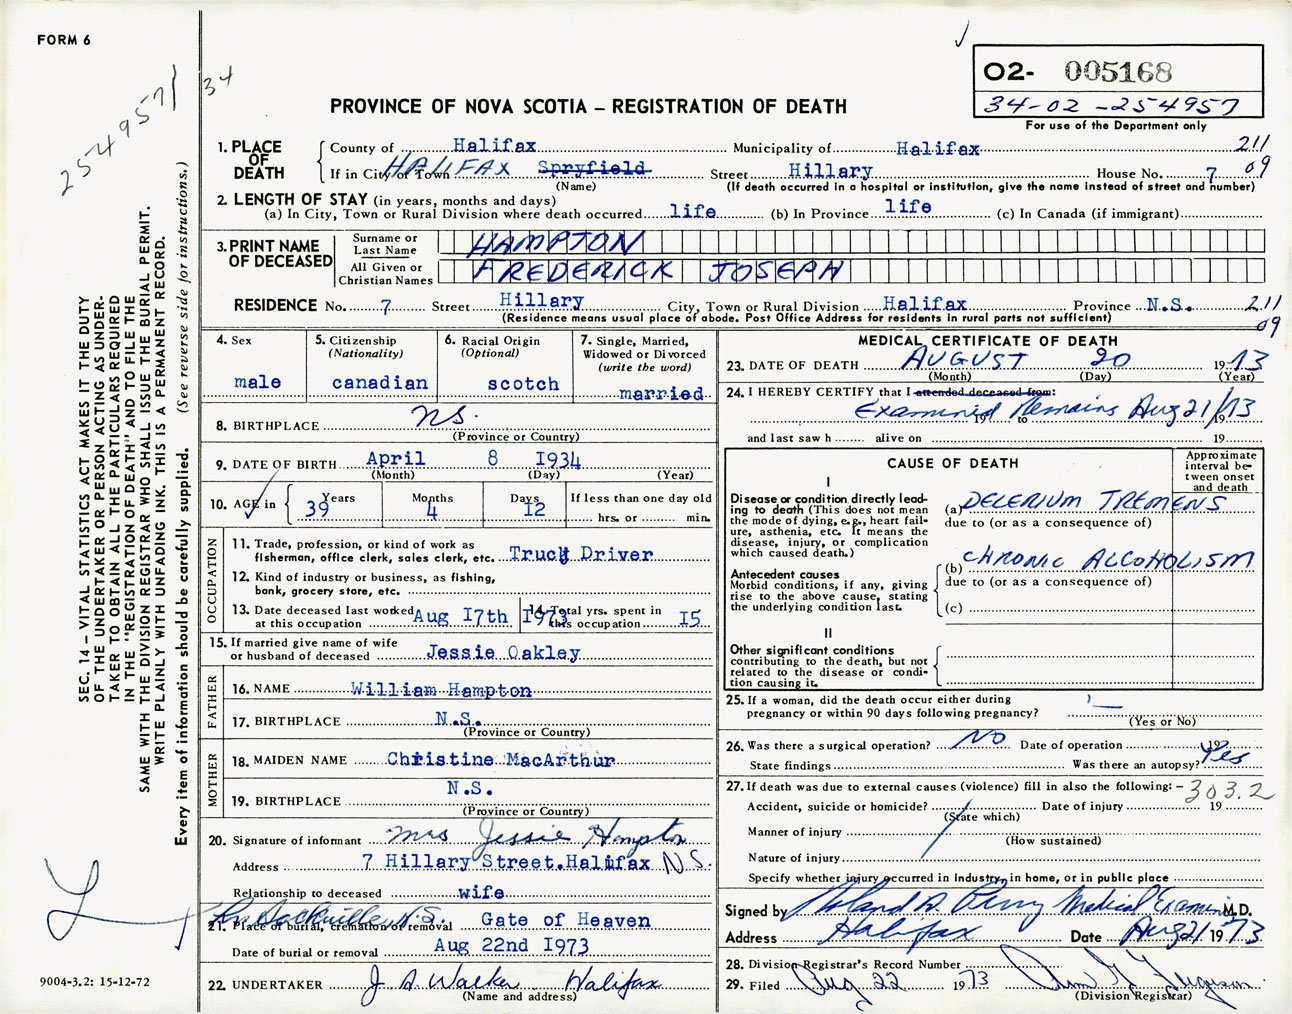 FORM 6
254957
34
O2- 005168
34-02-254957
For use of the Department only
PROVINCE OF NOVA SCOTIA – REGISTRATION OF DEATH
1. PLACE OF DEATH
County of Halifax Municipality of Halifax 211
If in City or Town HALIFAX Spryfield Street Hillary House No. 7 09
(Name) (If death occurred in a hospital or institution, give the name instead of street and number)
2. LENGTH OF STAY (in years, months and days)
(a) In City, Town or Rural Division where death occurred life (b) In Province life (c) In Canada (if immigrant)
3. PRINT NAME OF DECEASED
Surname or Last Name HAMPTON
All Given or Christian Names FREDERICK JOSEPH
RESIDENCE No. 7 Street Hillary City, Town or Rural Division Halifax Province N.S. 211
(Residence means usual place of abode. Post Office Address for residents in rural parts not sufficient) 09
4. Sex
male
5. Citizenship
(Nationality)
canadian
6. Racial Origin
(Optional)
scotch
7. Single, Married,
Widowed or Divorced
(write the word)
married
8. BIRTHPLACE NS.
(Province or Country)
9. DATE OF BIRTH April 8 I934
(Month) (Day) (Year)
10. AGE in
Years 39 Months 4 Days I2 If less than one day old
hrs. or min.
OCCUPATION
11. Trade, profession, or kind of work as
fisherman, office clerk, sales clerk, etc. Truck Driver
12. Kind of industry or business, as fishing,
bank, grocery store, etc.
13. Date deceased last worked
at this occupation Aug I7th I973
14. Total yrs. spent in
this occupation I5
15. If married give name of wife
or husband of deceased Jessie Oakley
FATHER
16. NAME William Hampton
17. BIRTHPLACE N.S.
(Province or Country)
MOTHER
18. MAIDEN NAME Christine MacArthur
19. BIRTHPLACE N.S.
(Province or Country)
20. Signature of informant Mrs Jessie Hampton
Address 7 Hillary Street.Halifax N.S.
Relationship to deceased wife
Sackville N.S.
21. Place of burial, cremation or removal Gate of Heaven
Date of burial or removal Aug 22nd I973
22. UNDERTAKER J A Walker Halifax
(Name and address)
MEDICAL CERTIFICATE OF DEATH
23. DATE OF DEATH AUGUST 20 1973
(Month) (Day) (Year)
24. I HEREBY CERTIFY that I attended deceased from:
Examined Remains Aug 21/73
19 to 19
and last saw h alive on 19
CAUSE OF DEATH
Approximate interval between onset and death
I
Disease or condition directly leading to death (This does not mean the mode of dying, e.g., heart failure, asthenia, etc. It means the disease, injury, or complication which caused death.)
(a) DELERIUM TREMENS
due to (or as a consequence of)
Antecedent causes
Morbid conditions, if any, giving rise to the above cause, stating the underlying condition last.
(b) CHRONIC ALCOHOLISM
due to (or as a consequence of)
(c)
II
Other significant conditions
contributing to the death, but not related to the disease or condition causing it.
25. If a woman, did the death occur either during
pregnancy or within 90 days following pregnancy?
(Yes or No)
26. Was there a surgical operation? NO Date of operation 19
State findings Was there an autopsy? Yes
27. If death was due to external causes (violence) fill in also the following: – 303.2
Accident, suicide or homicide? Date of injury 19
(State which)
Manner of injury
(How sustained)
Nature of injury
Specify whether injury occurred in industry, in home, or in public place
Signed by Roland A. Perry Medical Examiner M.D.
Address Halifax Date Aug 21 1973
28. Division Registrar's Record Number
29. Filed Aug 22 1973
(Division Registrar)
SEC. 14 – VITAL STATISTICS ACT MAKES IT THE DUTY
OF THE UNDERTAKER OR PERSON ACTING AS UNDERTAKER TO OBTAIN ALL THE PARTICULARS REQUIRED
IN THE "REGISTRATION OF DEATH" AND TO FILE THE
SAME WITH THE DIVISION REGISTRAR WHO SHALL ISSUE THE BURIAL PERMIT.
WRITE PLAINLY WITH UNFADING INK. THIS IS A PERMANENT RECORD.
Every item of information should be carefully supplied. (See reverse side for instructions.)
9004-3.2: 15-12-72